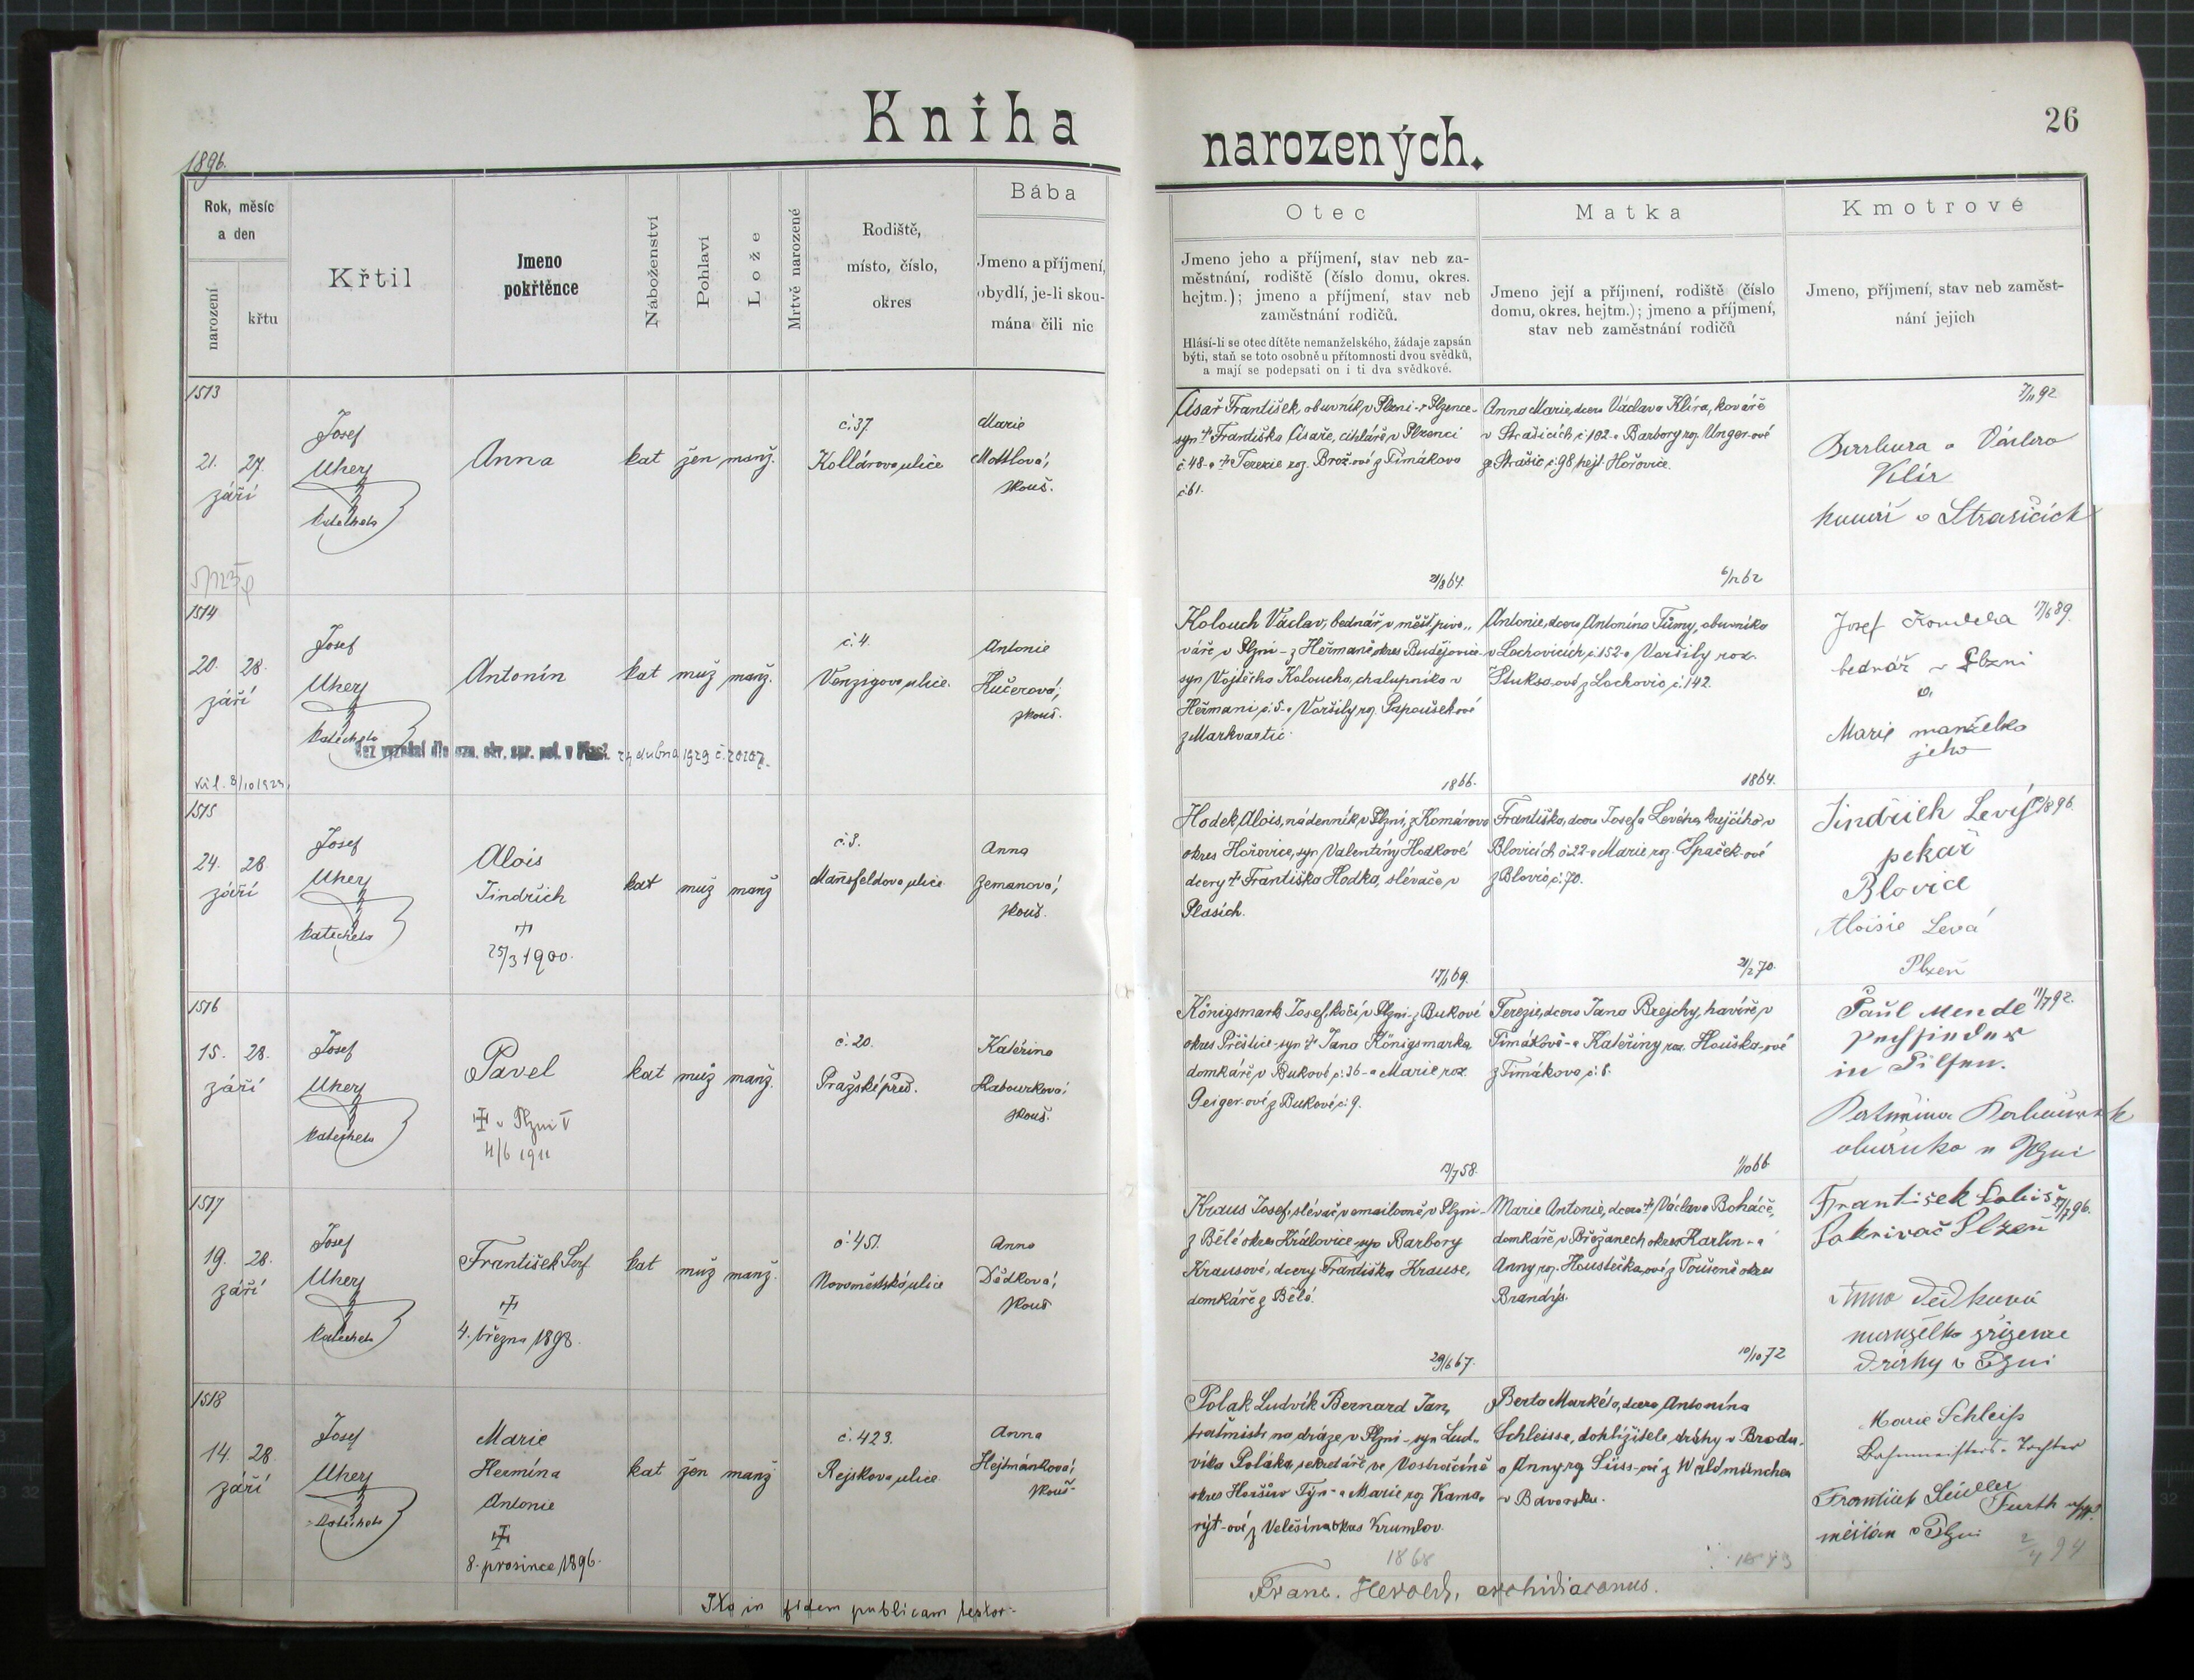 Kniha
narozených.
26
1896.
Rok, měsíc
a den
narození
křtu
Křtil
Jmeno
pokřtěnce
Náboženství
Pohlaví
Lože
Mrtvě narozené
Rodiště,
místo, číslo,
okres
Bába
Jmeno a příjmení,
obydlí, je-li skou-
mána čili nic
Otec
Jmeno jeho a příjmení, stav neb za-
městnání, rodiště (číslo domu, okres.
hejtm.); jmeno a příjmení, stav neb
zaměstnání rodičů.
Hlásí-li se otec dítěte nemanželského, žádaje zapsán
býti, staň se toto osobně u přítomnosti dvou svědků,
a mají se podepsati on i ti dva svědkové.
Matka
Jmeno její a příjmení, rodiště (číslo
domu, okres. hejtm.); jmeno a příjmení,
stav neb zaměstnání rodičů
Kmotrové
Jmeno, příjmení, stav neb zaměst-
nání jejich
1513
21. 27.
září
Josef
Uherz
katecheta
Anna
kat žen manž.
č. 37.
Kollárova ulice
Marie
Mottlová,
zkouš.
Císař František, obuvník v Plzni - z Plzence -
syn † Františka Císaře, cihláře v Plzenci
č. 48 - a † Terezie roz. Brož-ové z Tímákova
č. 61.
21/8 64.
Anna Marie, dcera Václava Klíra, kováře
v Strašicích č. 102 - a Barbory roz. Unger-ové
ze Strašic č. 98 hejt. Hořovice.
6/12 62
7/11 92
Barbora a Václav
Klír
kovář v Strašicích
1514
20. 28.
září
Josef
Uherz
katecheta
Antonín
kat muž manž.
č. 4.
Venzigova ulice.
Antonie
Kučerová,
zkouš.
Bez vyznání dle ozn. okr. spr. pol. v Plzni. dubna 1929 č. 20207.
8/10 1929.
Kolouch Václav, bednář v měšť. pivo-
váře v Plzni - z Heřmaně okres Budějovice
syn Vojtěcha Koloucha, chalupníka v
Heřmani č. 5 - a Voršily roz. Papoušek-ové
z Markvartic.
1866.
Antonie, dcera Antonína Tůmy, obuvníka
v Lochovicích č. 152 - a Voršily roz.
Štuksa-ové z Lochovic č. 142.
1864.
17/6 89.
Josef
bednář v Plzni
a
Marie manželka
jeho
1515
24. 28.
září
Josef
Uherz
katecheta
Alois
Jindřich
†
25/3 1900.
kat muž manž
č. 8.
Mansfeldova ulice
Anna
Zemanová,
zkouš.
Hodek Alois, nádenník v Plzni, z Komárova
okres Hořovice, syn Valentiny Hodkové
dcery † Františka Hodka, slévače v
Plasích.
17/1 69.
Františka, dcera Josefa Levého, krejčího v
Blovicích č. 22 - a Marie roz. Špaček-ové
z Blovic č. 70.
21/2 70.
Jindřich Levý 19/8 96.
pekař
Blovice
Aloisie Levá
Plzeň
1516
15. 28.
září
Josef
Uherz
katecheta
Pavel
† v Plzni V
4/6 1911
kat muž manž.
č. 20.
Pražské před.
Kateřina
Rabourková,
zkouš.
Königsmark Josef, kočí v Plzni - z Bukové
okres Přeštice - syn † Jana Königsmarka,
domkáře v Bukové č. 36 - a Marie roz.
Geiger-ové z Bukové č. 9.
13/7 58.
Terezie, dcera Jana Brejchy, havíře v
Tímákově - a Kateřiny roz. Houška-ové
z Tímákova č. 8.
1/10 66
Paul Mende 11/7 92.
in Pilsen.
v Plzni
1517
19. 28.
září
Josef
Uherz
katecheta
František Ser.
†
4. března 1898.
kat muž manž.
č. 451.
Novoměstská ulice
Anna
Dědková,
zkouš
Kraus Josef, slévač v emailovně v Plzni -
z Bělé okres Královice syn Barbory
Krausové, dcery Františka Krause,
domkáře z Bělé.
29/6 67.
Marie Antonie, dcera † Václava Boháče,
domkáře v Břežanech okres Karlín - a
Anny roz. Houstečka-ové z Toušeně okres
Brandýs.
10/10 72
František
Plzeň
Anna Dědková
manželka zřízence
dráhy v Plzni
1518
14. 28.
září
Josef
Uherz
katecheta
Marie
Hermína
Antonie
†
8. prosince 1896.
kat žen manž
č. 423.
Rejskova ulice.
Anna
Hejtmánková,
zkouš.
Polak Ludvík Bernard Jan,
traťmistr na dráze v Plzni - syn Lud-
víka Poláka, sekretáře ve Vostračíně
okres Horšův Týn - a Marie roz. Kama-
rýt-ové z Velešína okres Krumlov.
1868
Berta Markéta, dcera Antonína
Schleisse, dohlížitele dráhy v Brodu
a Anny roz. Süss-ové z Waldmünchen
v Bavorsku.
Marie Schleiß
Bahnmeisters-Tochter
Furth
František Seidler
měšťan v Plzni
94
Ita in fidem publicam testor.
Franc. Herold, archidiaconus.